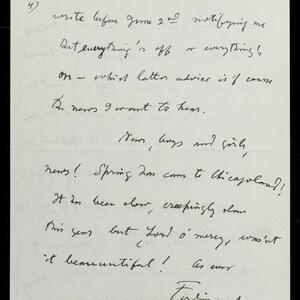 4)
write before June 2nd notifying me
that everything's off or everything's
on – which latter advice is of course
the news I want to hear.
News, boys and girls,
news! Spring has come to Chicagoland!
It has been slow, creepingly slow
this year but, Lord o' mercy, wasn't
it beauuuutiful! As ever